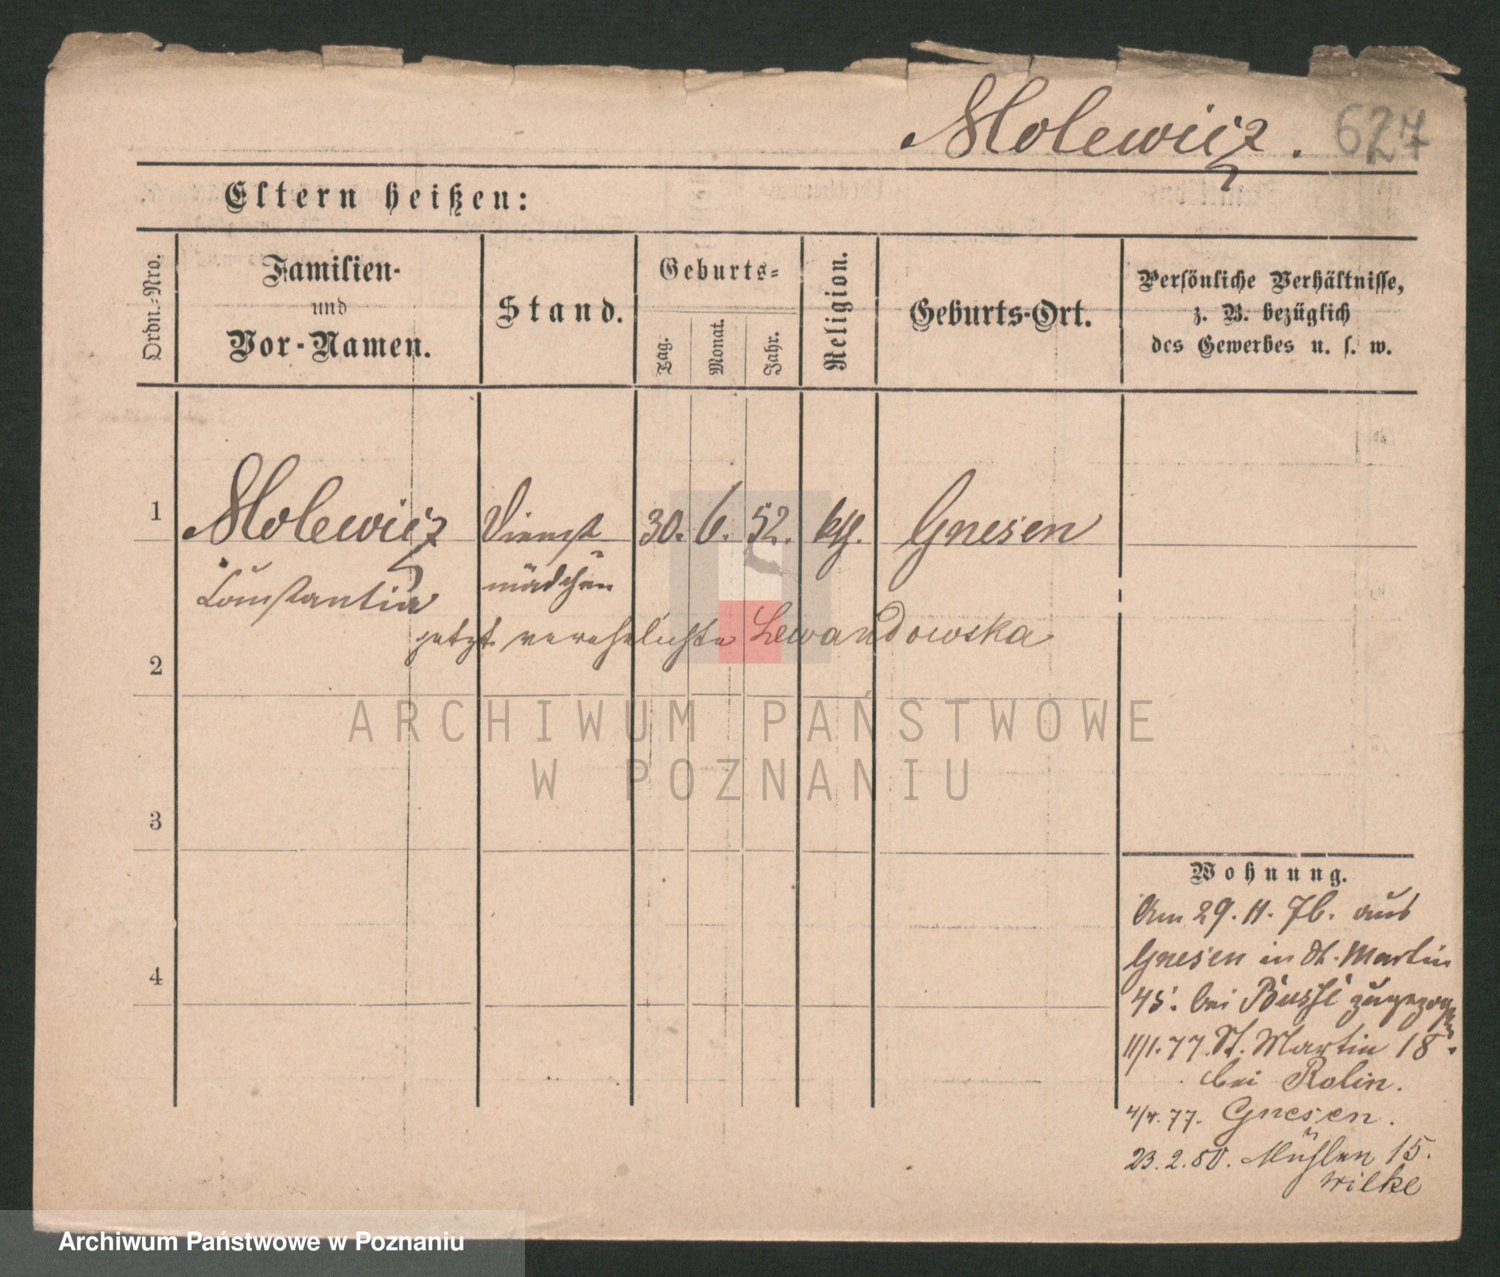 Molewicz. 627
Eltern heißen:
Ordn.-Nro.
Familien-
und
Vor-Namen.
Stand.
Geburts-
Tag.
Monat.
Jahr.
Religion.
Geburts-Ort.
Persönliche Verhältnisse,
z. B. bezüglich
des Gewerbes u. s. w.
1 Molewicz Dienst 30. 6. 52. kth. Gnesen
Constantia mädchen
jetzt verehelichte Lewandowska
2
3
4
ARCHIWUM PAŃSTWOWE
W POZNANIU
Wohnung.
Am 29. 11. 76. aus
Gnesen in St. Martin
45. bei Busse zugezogen
11/1. 77. St. Martin 18.
bei Rolin.
4/4. 77. Gnesen.
23. 2. 80. Mühlen 15.
Wilke
Archiwum Państwowe w Poznaniu